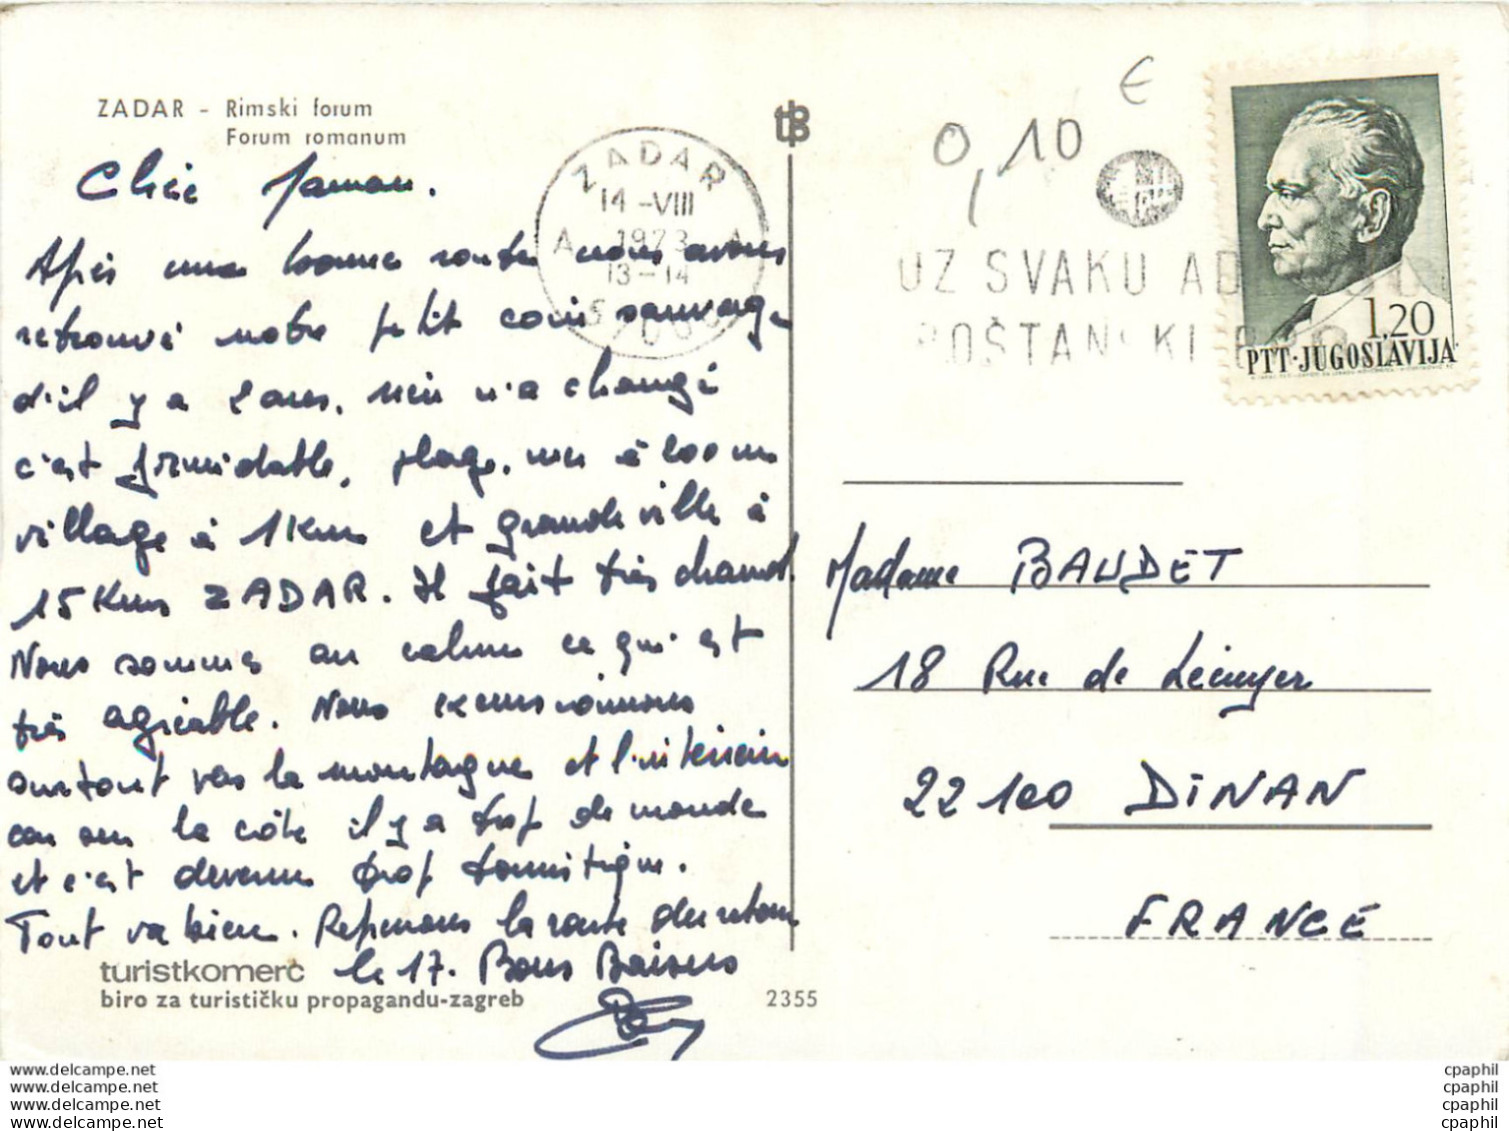 ZADAR - Rimski forum
Forum romanum
Chère Maman.
Après une bonne route nous avons
retrouvé notre petit coin sauvage
d'il y a 2 ans, rien n'a changé
c'est formidable, plage, mer à 200 m
village à 1 Km et grande ville à
15 Kms ZADAR. Il fait très chaud.
Nous sommes au calme ce qui est
très agréable. Nous excursionnons
surtout vers la montagne et l'intérieur
car sur la côte il y a trop de monde
et c'est devenu trop touristique.
Tout va bien. Reprenons la route du retour
le 17. Bons Baisers
turistkomerc
biro za turističku propagandu-zagreb
2355
ZADAR
14-VIII
1973
13-14
A A
€
0,10
UZ SVAKU AD
POŠTANSKI
1,20
PTT·JUGOSLAVIJA
Madame BAUDET
18 Rue de
22100 DINAN
FRANCE
www.delcampe.net
www.delcampe.net
www.delcampe.net
www.delcampe.net
cpaphil
cpaphil
cpaphil
cpaphil